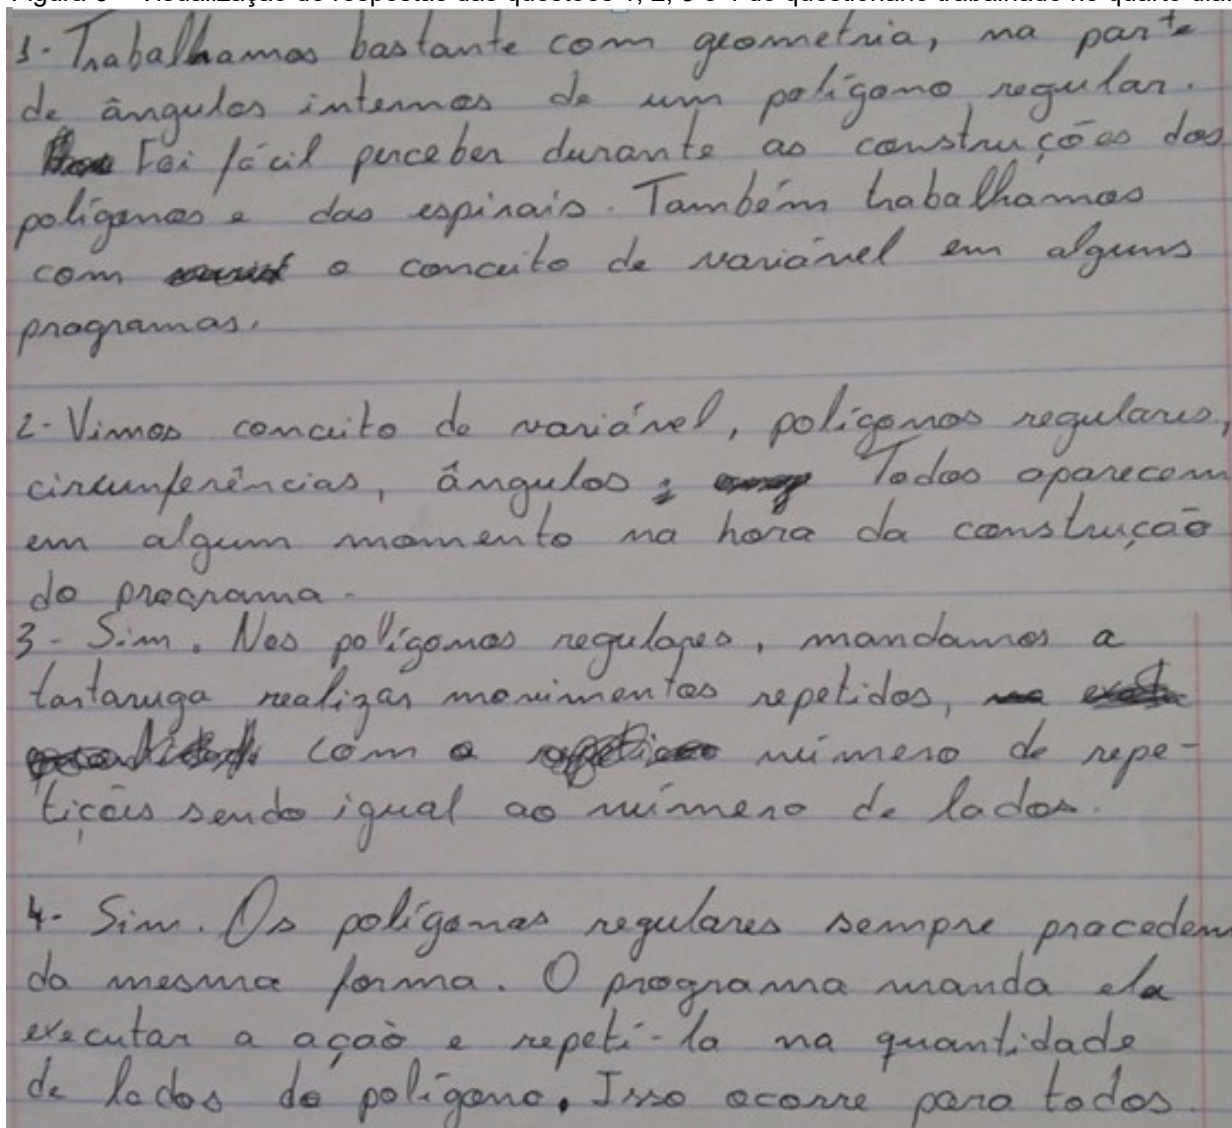 1- Trabalhamos bastante com geometria, na parte
de ângulos internos de um polígono regular.
Foi fácil perceber durante as construções dos
polígonos e das espirais. Também trabalhamos
com o conceito de variável em alguns
programas.
2- Vimos conceito de variável, polígonos regulares,
circunferências, ângulos; Todos aparecem
em algum momento na hora da construção
do programa.
3- Sim. Nos polígonos regulares, mandamos a
tartaruga realizar movimentos repetidos,
com o número de repe-
tições sendo igual ao número de lados.
4- Sim. Os polígonos regulares sempre procedem
da mesma forma. O programa manda ela
executar a ação e repeti-la na quantidade
de lados do polígono. Isso ocorre para todos.